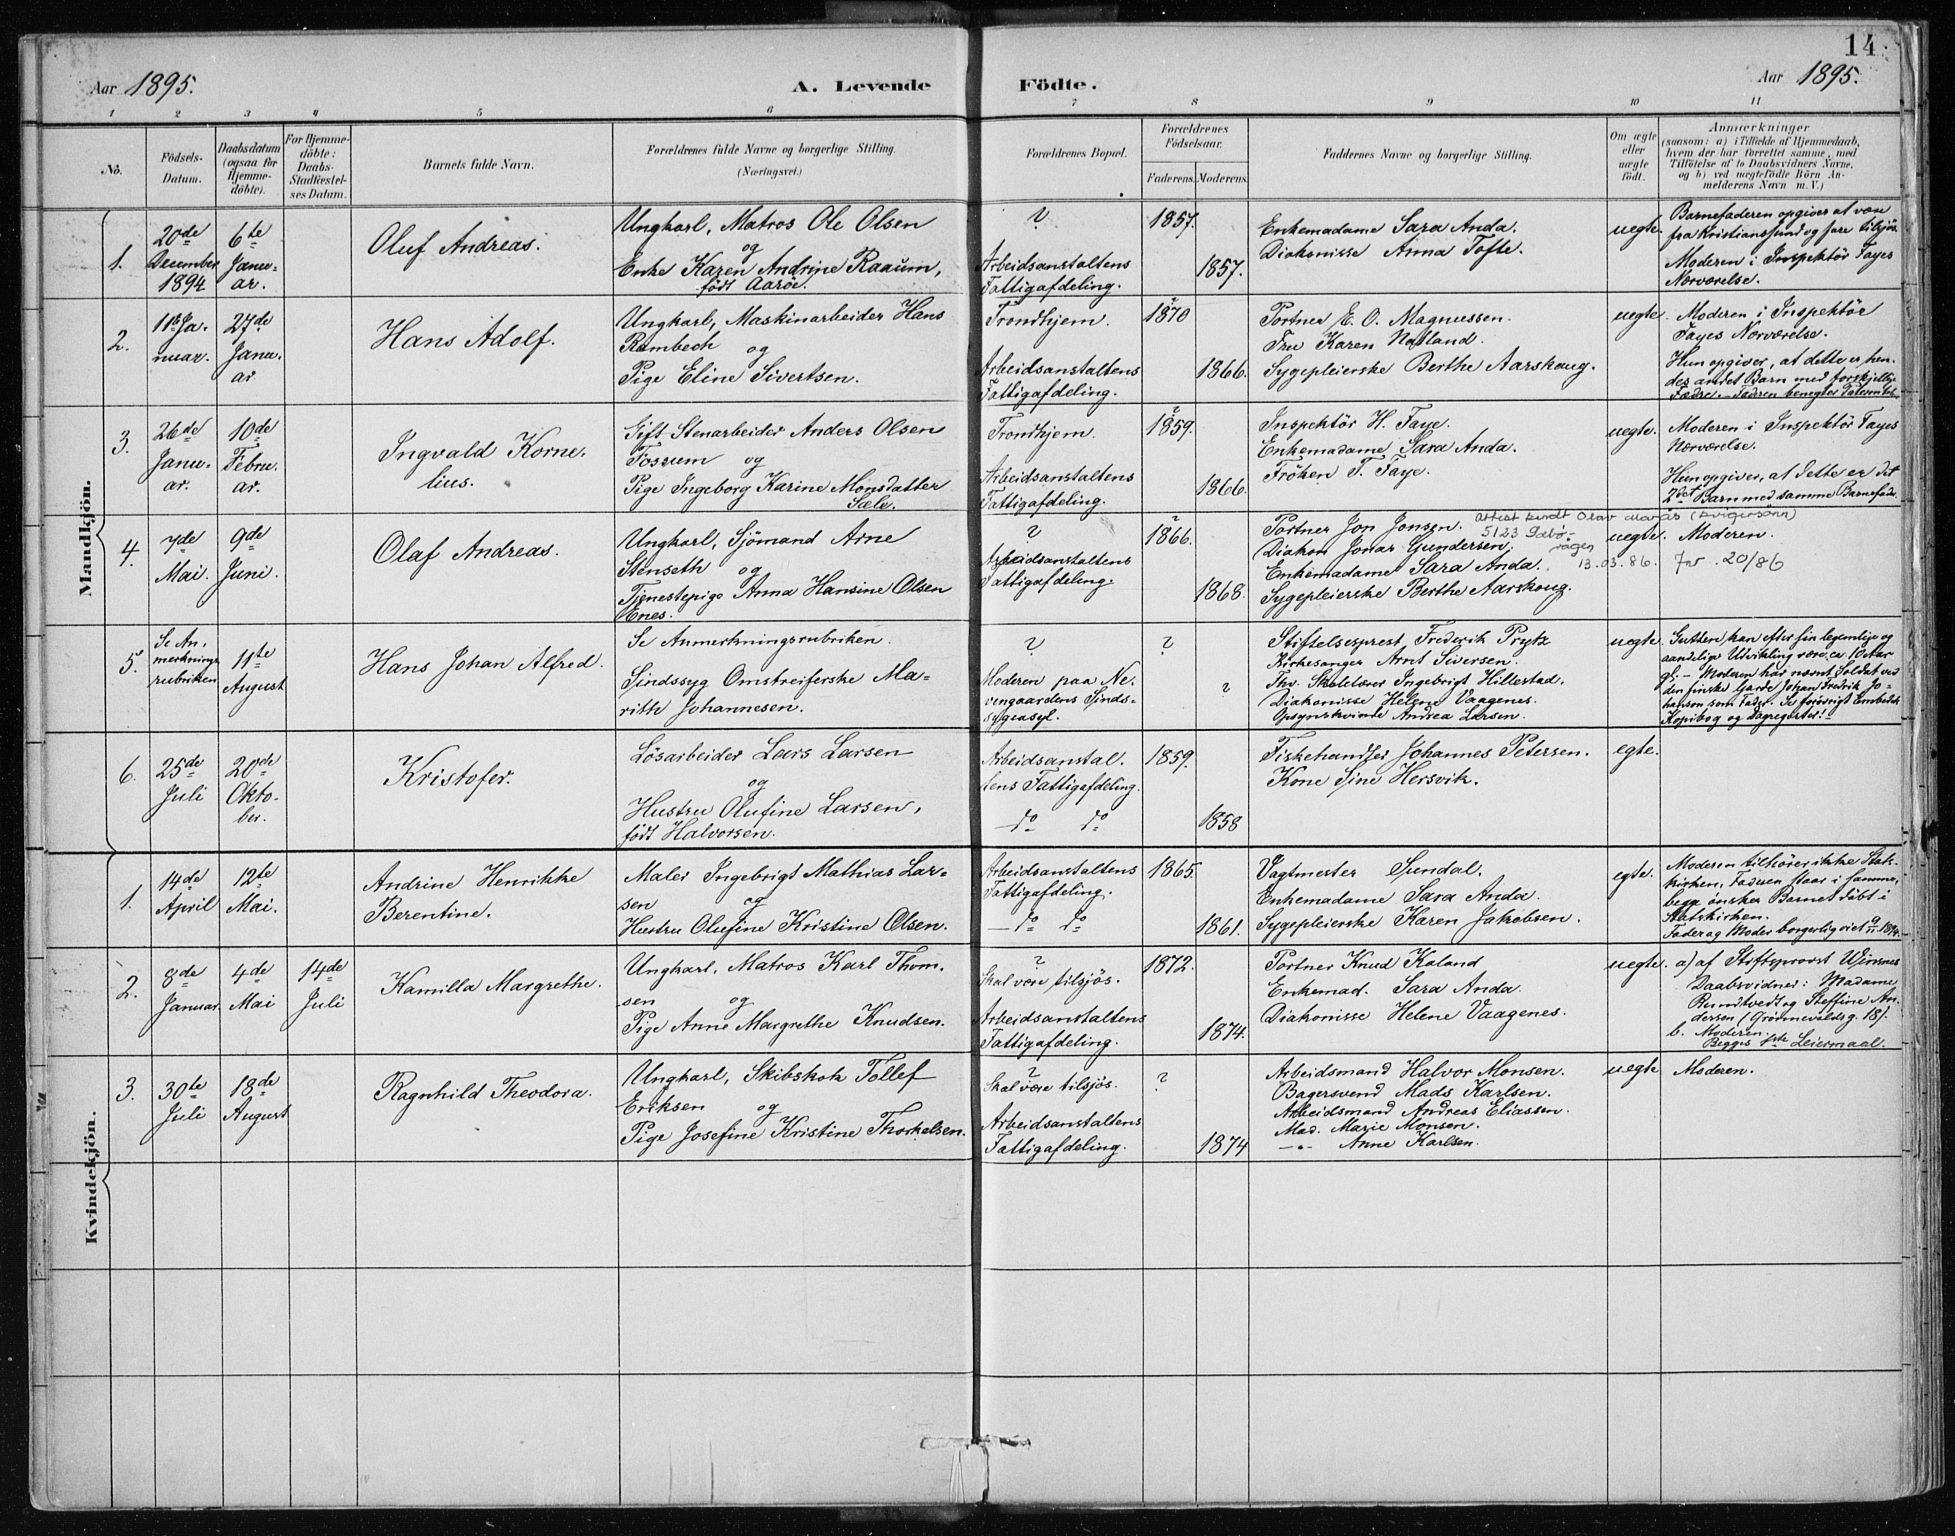 14
Aar 1895.
A. Levende
Födte.
Aar 1895.
1 2 3 4 5 6 7 8 9 10 11
No.
Födsels-
Datum.
Daabsdatum
(ogsaa for
Hjemme-
döbte).
For Hjemme-
döbte:
Daabs-
Stadfæstel-
ses Datum.
Barnets fulde Navn.
Forældrenes fulde Navne og borgerlige Stilling.
(Næringsvei.)
Forældrenes Bopæl.
Forældrenes
Födselsaar.
Faderens. Moderens.
Faddernes Navne og borgerlige Stilling.
Om ægte
eller
uægte
födt.
Anmærkninger
(saasom: a) i Tilfælde af Hjemmedaab,
hvem der har forrettet samme, med
Tilföielse af to Daabsvidners Navne,
og b) ved uægtefödte Börn An-
melderens Navn m. V.)
Mandkjön.
1.
20de
December
1894
6te
Janu-
ar.
Oluf Andreas.
Ungkarl, Matros Ole Olsen
og
Enke Karen Andrine Raaum,
födt Aaröe.
?
Arbeidsanstaltens
Fattigafdeling.
1857.
1857.
Enkemadame Sara Anda.
Diakonisse Anna Tofte.
uegte.
Barnefaderen opgives at være
fra Kristianssund og fare tilsjös.
Moderen i Inspektör Fayes
Nærværelse.
2.
11te Ja-
nuar.
27de
Janu-
ar
Hans Adolf.
Ungkarl, Maskinarbeider Hans
Rambech og
Pige Eline Sivertsen.
Trondhjem.
Arbeidsanstaltens
Fattigafdeling.
?
1870
1866.
Portner E. O. Magnussen.
Fru Karen Natland.
Sygepleierske Berthe Aarskoug.
uegte.
Moderen i Inspektör
Fayes Nærværelse.
Hun opgiver, at dette er hen-
des andet Barn med forskjellige
Fædre. - Faderen benegtes
3.
26de
Janu-
ar.
10de
Febru-
ar.
Ingvald Korne-
lius.
Gift Stenarbeider Anders Olsen
Fossum og
Pige Ingeborg Karine Monsdatter
Sæle.
Trondhjem.
Arbeidsanstaltens
Fattigafdeling.
?
1859.
1866.
Inspektör H. Faye.
Enkemadame Sara Anda.
Fröken F. Faye.
uegte.
Moderen i Inspektör Fayes
Nærværelse.
Hun opgiver, at dette er det
2det Barn med samme Barnefader.
4.
7de
Mai.
9de
Juni.
Olaf Andreas.
Ungkarl, Sjömand Arne
Stenseth og
Tjenestepige Anna Hansine Olsen
Enes.
?
Arbeidsanstaltens
Fattigafdeling.
?
1866.
1868.
Portner Jon Jonsen.
Diakon Jonas Gundersen.
Enkemadame Sara Anda.
Sygepleierske Berthe Aarskoug.
Attest sendt Olav Marås (svigersønn)
5123 Sæbø-
vågen
13.03.86. Jnr. 20/86
uegte.
Moderen.
5.
Se An-
merknings
rubriken
11te
August
Hans Johan Alfred.
Se Anmerkningsrubriken.
Sindssyg Omstreiferske Ma-
rith Johannesen.
?
Moderen paa Ne-
vengaardens Sinds-
sygeasyl.
?
?
Stiftelsesprest Frederik Prytz
Kirkesanger Arnt Siversen.
Fhv. Skolelærer Ingebrigt Hillestad.
Diakonisse Helene Vaagenes.
Opsynskvinde Andrea Larsen.
uegte.
Gutten kan efter sin legemlige og
aandelige Udvikling være ca. 10 Aar
gl. - Moderen har nævnt Soldat ved
den finske Garde Johan Fredrik Jo-
hanson som Fader. Se forövrigt Embeds
Kopibog og Dagregister!
6.
25de
Juli
20de
Okto-
ber.
Kristofer.
Lösarbeider Lars Larsen
og
Hustru Olufine Larsen,
födt Halvorsen.
Arbeidsanstal-
tens Fattigafdeling.
— do do
1859.
1858
Fiskehandler Johannes Petersen.
Kone Sine Hersvik.
egte.
Kvindekjön.
1.
14de
April
12te
Mai.
Andrine Henrikke
Berentine.
Maler Ingebrigt Mathias Lar-
sen og
Hustru Olufine Kristine Olsen.
Arbeidsanstaltens
Fattigafdeling.
— do do
1865.
1861.
Vagtmester Sundal.
Enkemadame Sara Anda.
Sygepleierske Karen Jakobsen.
egte.
Moderen tilhörer ikke Stats-
kirken, Faderen staar i samme,
begge önsker Barnet döbt i
Statskirken.
Fader og Moder borgerlig viet
2.
8de
Januar.
4de
Mai
14de
Juli
Kamilla Margrethe.
Ungkarl, Matros Karl Thom-
sen og
Pige Anne Margrethe Knudsen.
?
Skal være tilsjös.
Arbeidsanstaltens
Fattigafdeling.
1872.
1874.
Portner Knud Kaland
Enkemad. Sara Anda.
Diakonisse Helene Vaagenes.
uegte.
a) af Stiftsprovst Winsnes
Daabsvidner: Madame
Rundtvedt og Steffine An-
dersen (Grönnevoldsg. 18).
b. Moderen.
Begges 1ste Leiermaal.
3.
30te
Juli
18de
August
Ragnhild Theodora.
Ungkarl, Skibskok Tollef
Eriksen og
Pige Josefine Kristine Thorkelsen.
?
Skal være tilsjös.
Arbeidsanstaltens
Fattigafdeling.
?
1874
Arbeidsmand Halvor Monsen.
Bagersvend Mads Karlsen.
Arbeidsmand Andreas Eliassen.
Mad. Marie Monsen.
—"— Anne Karlsen.
uegte
Moderen.